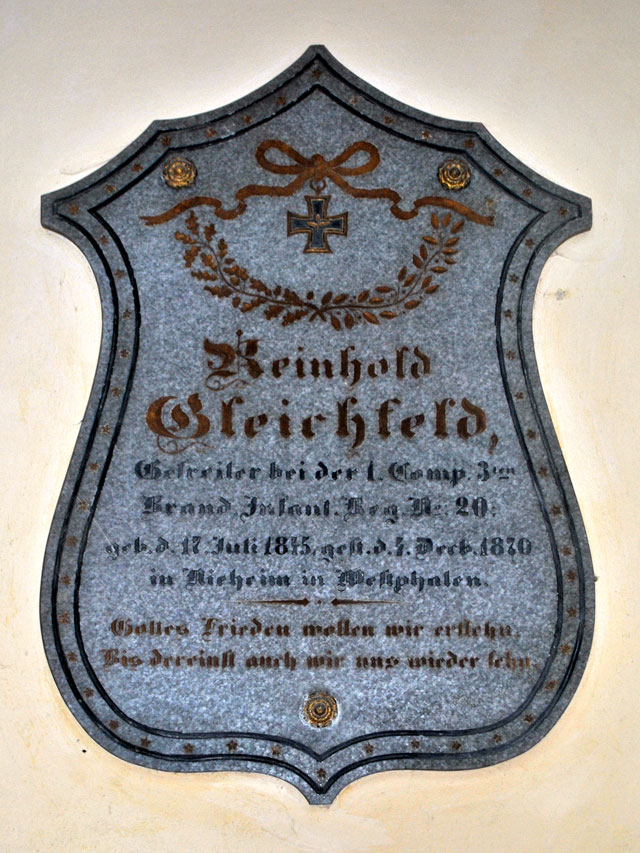 Reinhold
Gleichfeld,
Gefreiter bei der 1. Comp. 3ten
Brand. Infant. Reg. No. 20.
geb. d. 17. Juli 1845, gest. d. 7. Decb. 1870
in Nieheim in Westphalen.
Gottes Frieden wollen wir erflehn,
Bis dereinst auch wir uns wieder sehn.